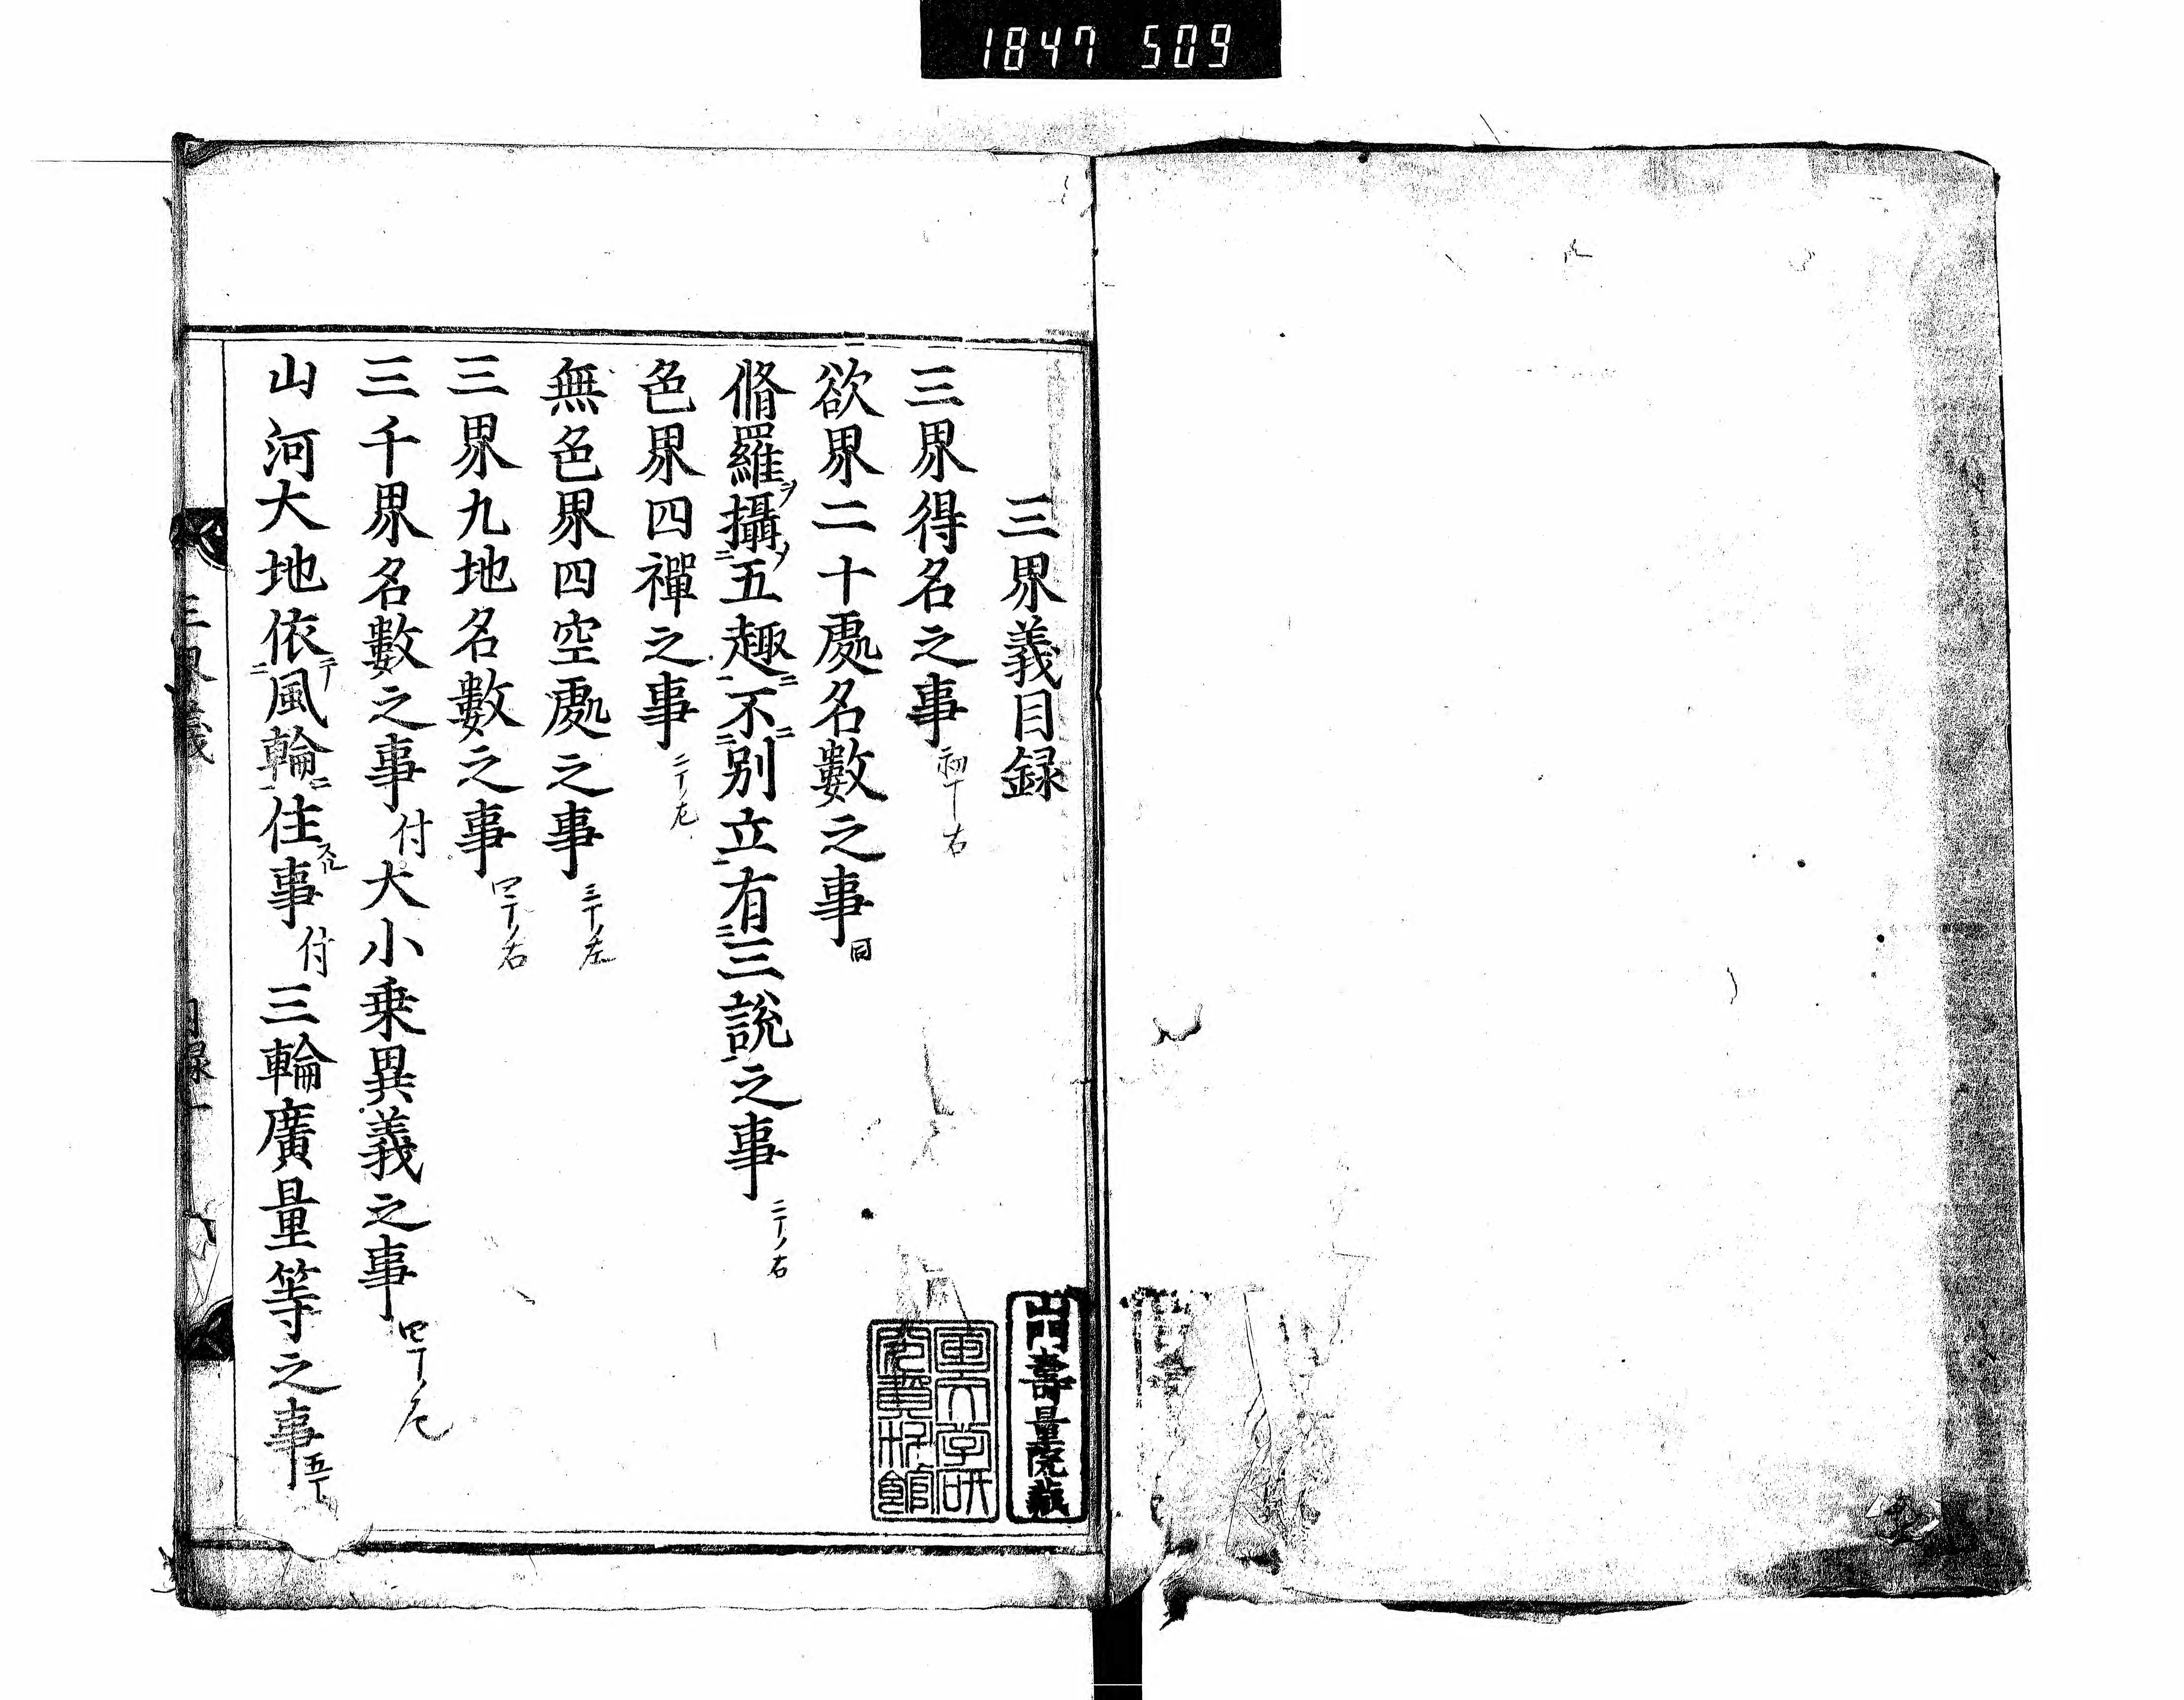 1847 509
三界義目録
三界得名之事 初丁右
欲界二十處名數之事 同
脩羅ヲ攝ノ二五趣ニ一不ニ二別立一有二三說一之事 二丁ノ右
色界四禪之事 二丁ノ左
無色界四空處之事 三丁ノ左
三界九地名數之事 四丁ノ右
三千界名數之事付大小乗異義之事 四丁ノ左
山河大地依テ二風輪ニ一住スル事付三輪廣量等之事 五丁
三界義 目録 一
山門壽量院藏